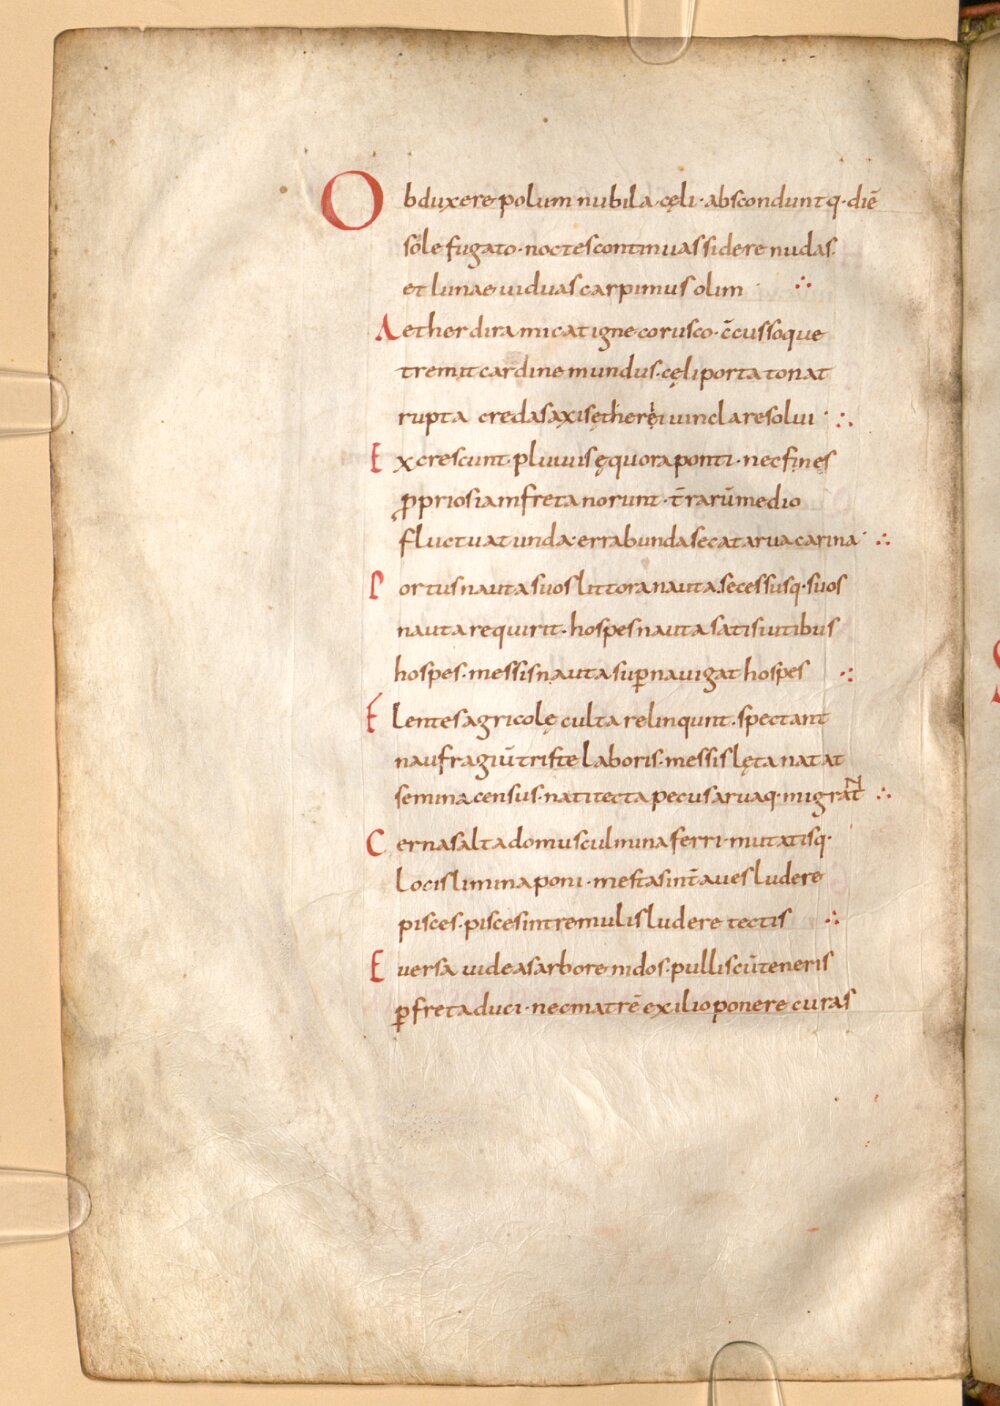 Obduxere polum nubila·cęli·absconduntq·diē
sole fugato·noctes continuas sidere nudas·
et lunae uiduas carpimus olim ·
Aether dira micat igne corusco·c̄cussoque
tremit cardine mundus·cęli porta tonat
rupta credas axis ętherei uincla resolui ·
Excrescunt·pluuiis ęquora ponti·nec fines
ꝓprios iam freta norunt·t̄rarū medio
fluctuat unda·errabunda secat arua carina·
Portus nauta suos littora nauta·secessusq·suos
nauta requirit·hospes nauta satis utibus
hospes·messis nauta suꝑnauigat hospes
Flentes agricolę culta relinqunt·spectant
naufragiū triste laboris·messis lęta natat
semina census·nati tecta pecus aruaq·migrant
Cernas alta domus culmina ferri·mutatisq·
locis limina poni·mestas int̄ aues ludere
pisces·pisces in tremulis ludere tectis
Euersa uideas arbore nidos·pullis cū teneris
ꝑ freta duci·nec matrē exilio ponere curas